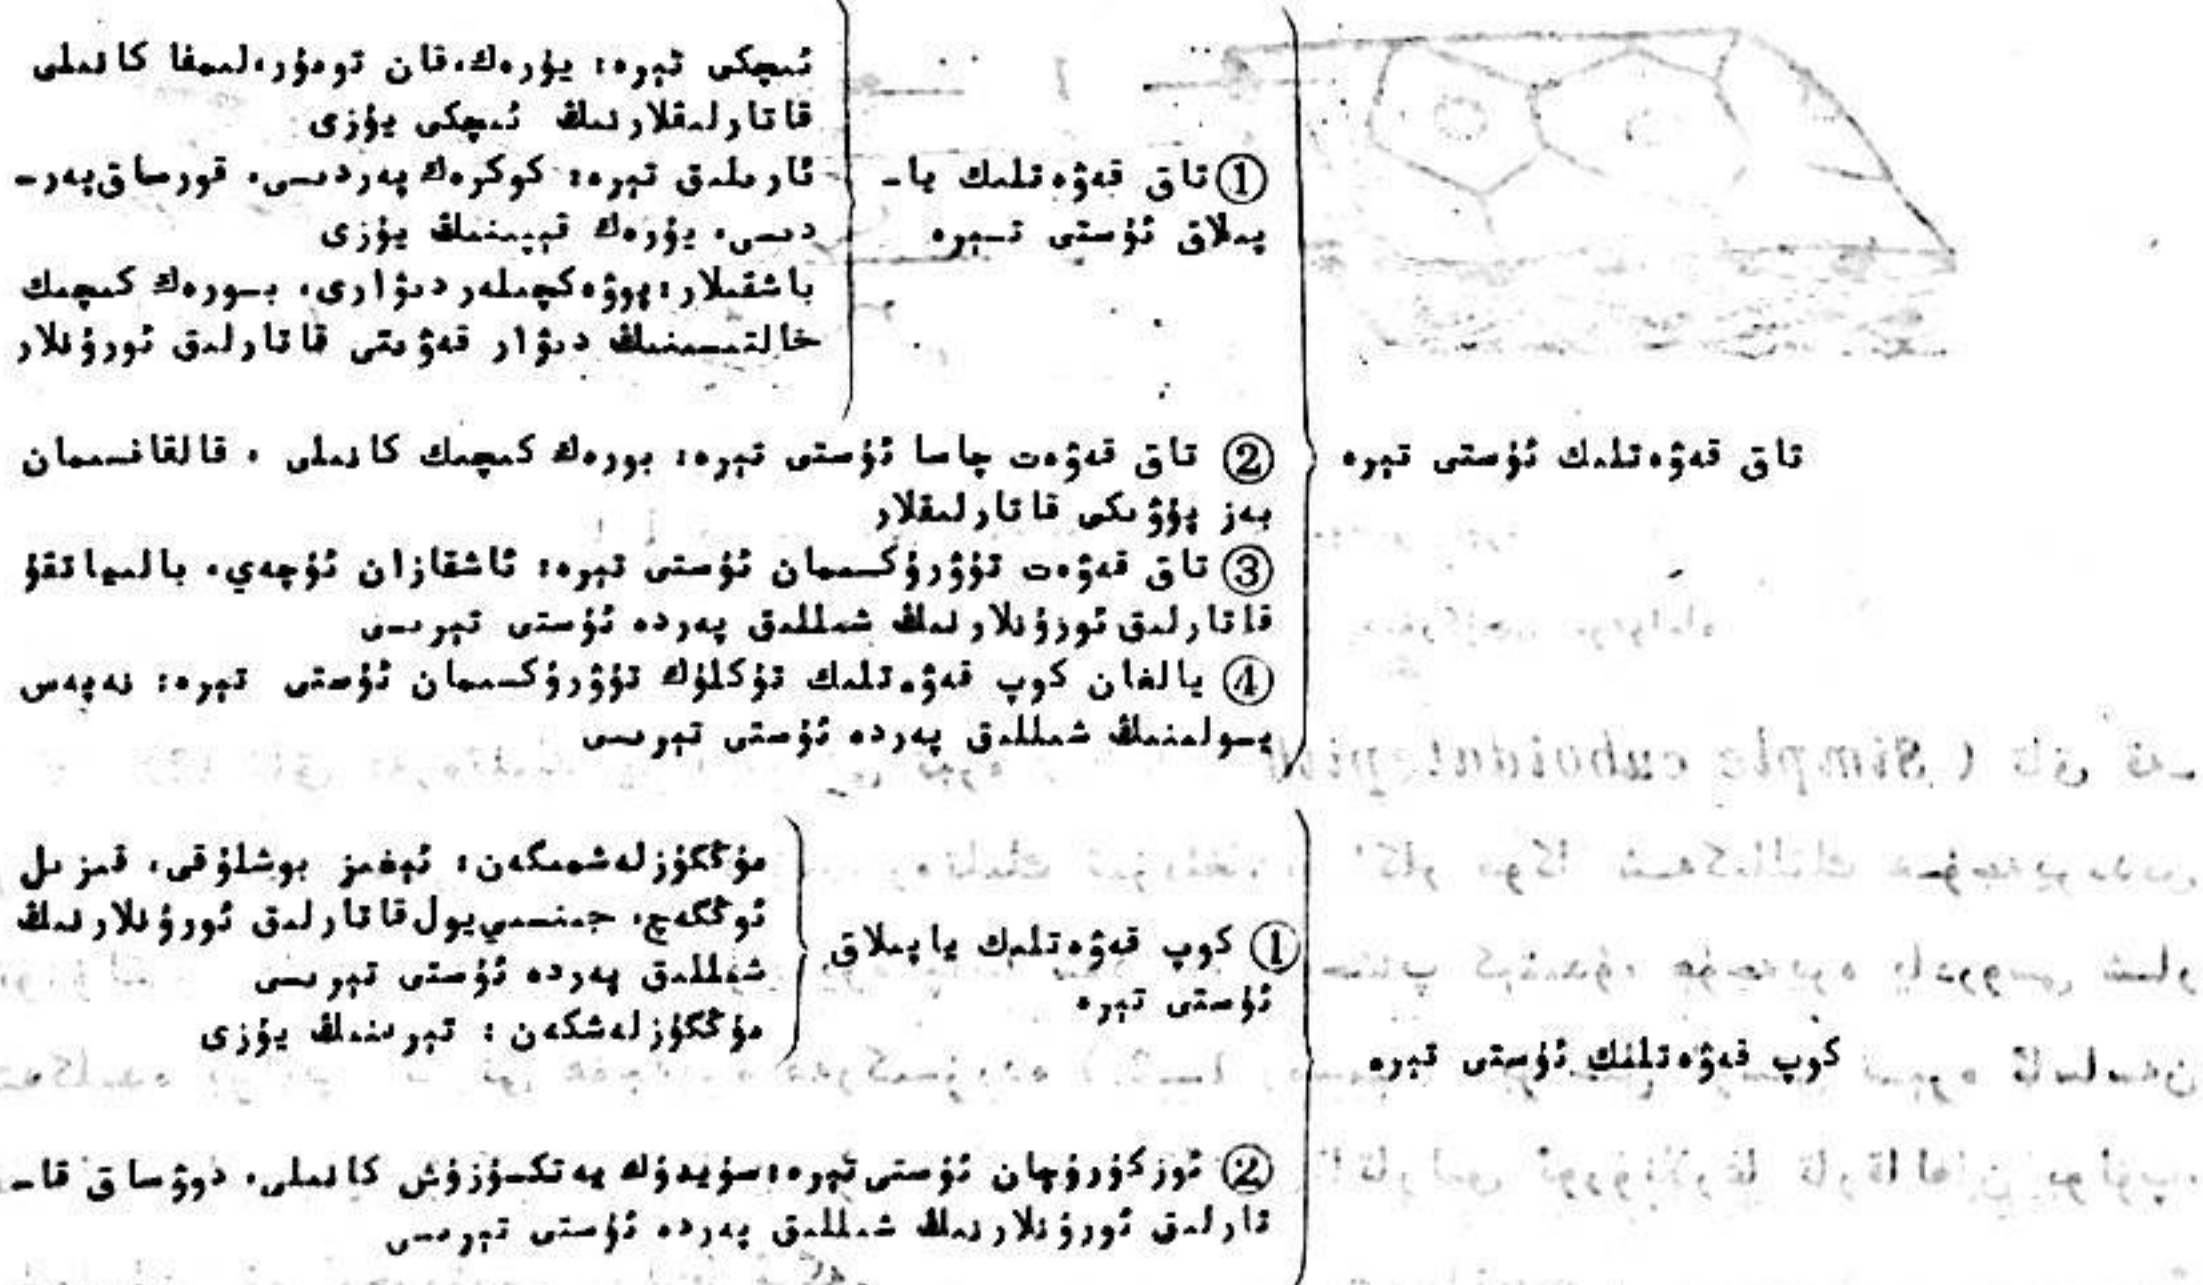 تاق قەۋەتلىك ئۈستى تېرە
①تاق قەۋەتلىك يا-
پىلاق ئۈستى تېرە
ئىچكى تېرە: يۈرەك، قان تومۇر، لىمفا كانىلى
قاتارلىقلارنىڭ ئىچكى يۈزى
ئارىلىق تېرە: كوكرەك پەردىسى، قورساق پەر-
دىسى، يۈرەك قېپىنىڭ يۈزى
باشقىلار: پوۋەكچىلەر دىۋارى، بورەك كىچىك
خالتىسىنىڭ دىۋار قەۋىتى قاتارلىق ئورۇنلار
② تاق قەۋەت چاسا ئۈستى تېرە: بورەك كىچىك كانىلى ، قالقانسىمان
بەز پۈۋىكى قاتارلىقلار
③ تاق قەۋەت تۈۋرۈكسىمان ئۈستى تېرە: ئاشقازان ئۈچەي، بالىياتقۇ
قاتارلىق ئورۇنلارنىڭ شىللىق پەردە ئۈستى تېرىسى
④ يالغان كوپ قەۋەتلىك تۈكلۈك تۈۋرۈكسىمان ئۈستى تېرە: نەپەس
يولىنىڭ شىللىق پەردە ئۈستى تېرىسى
كوپ قەۋەتلىك ئۈستى تېرە
① كوپ قەۋەتلىك ياپىلاق
ئۈستى تېرە
مۈڭگۈزلەشمىگەن: ئېغىز بوشلۇقى، قىزىل
ئوڭگەچ، جىنسىي يول قاتارلىق ئورۇنلارنىڭ
شىللىق پەردە ئۈستى تېرىسى
مۈڭگۈزلەشكەن: تېرىنىڭ يۈزى
② ئوزگۈرۈچان ئۈستى تېرە: سۈيدۈك يەتكۈزۈش كانىلى، دوۋساق قا-
تارلىق ئورۇنلارنىڭ شىللىق پەردە ئۈستى تېرىسى